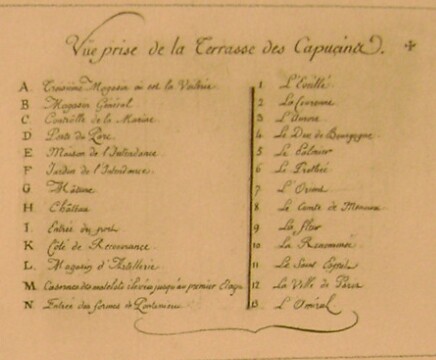 Vüe prise de la Terrasse des Capucins.
A Troisième Magasin où est la Voilerie
B Magasin Général
C Contrôlle de la Marine
D Porte du Parc
E Maison de l'Intendance
F Jardin de l'Intendance
G Mâture
H Château
I Entrée du port
K Côté de Recouvrance
L Magasin d'Artillerie
M Casernes des matelots élevées jusqu'au premier Etage
N Entrée des formes de Pontaniou
1 L'Eveillé
2 La Couronne
3 L'Aurore
4 Le Duc de Bourgogne
5 Le Palmier
6 Le Prothée
7 L'Orient
8 Le Comte de
9 La fleur
10 La Renommée
11 Le Saint Esprit
12 La Ville de Paris
13 L'Amiral